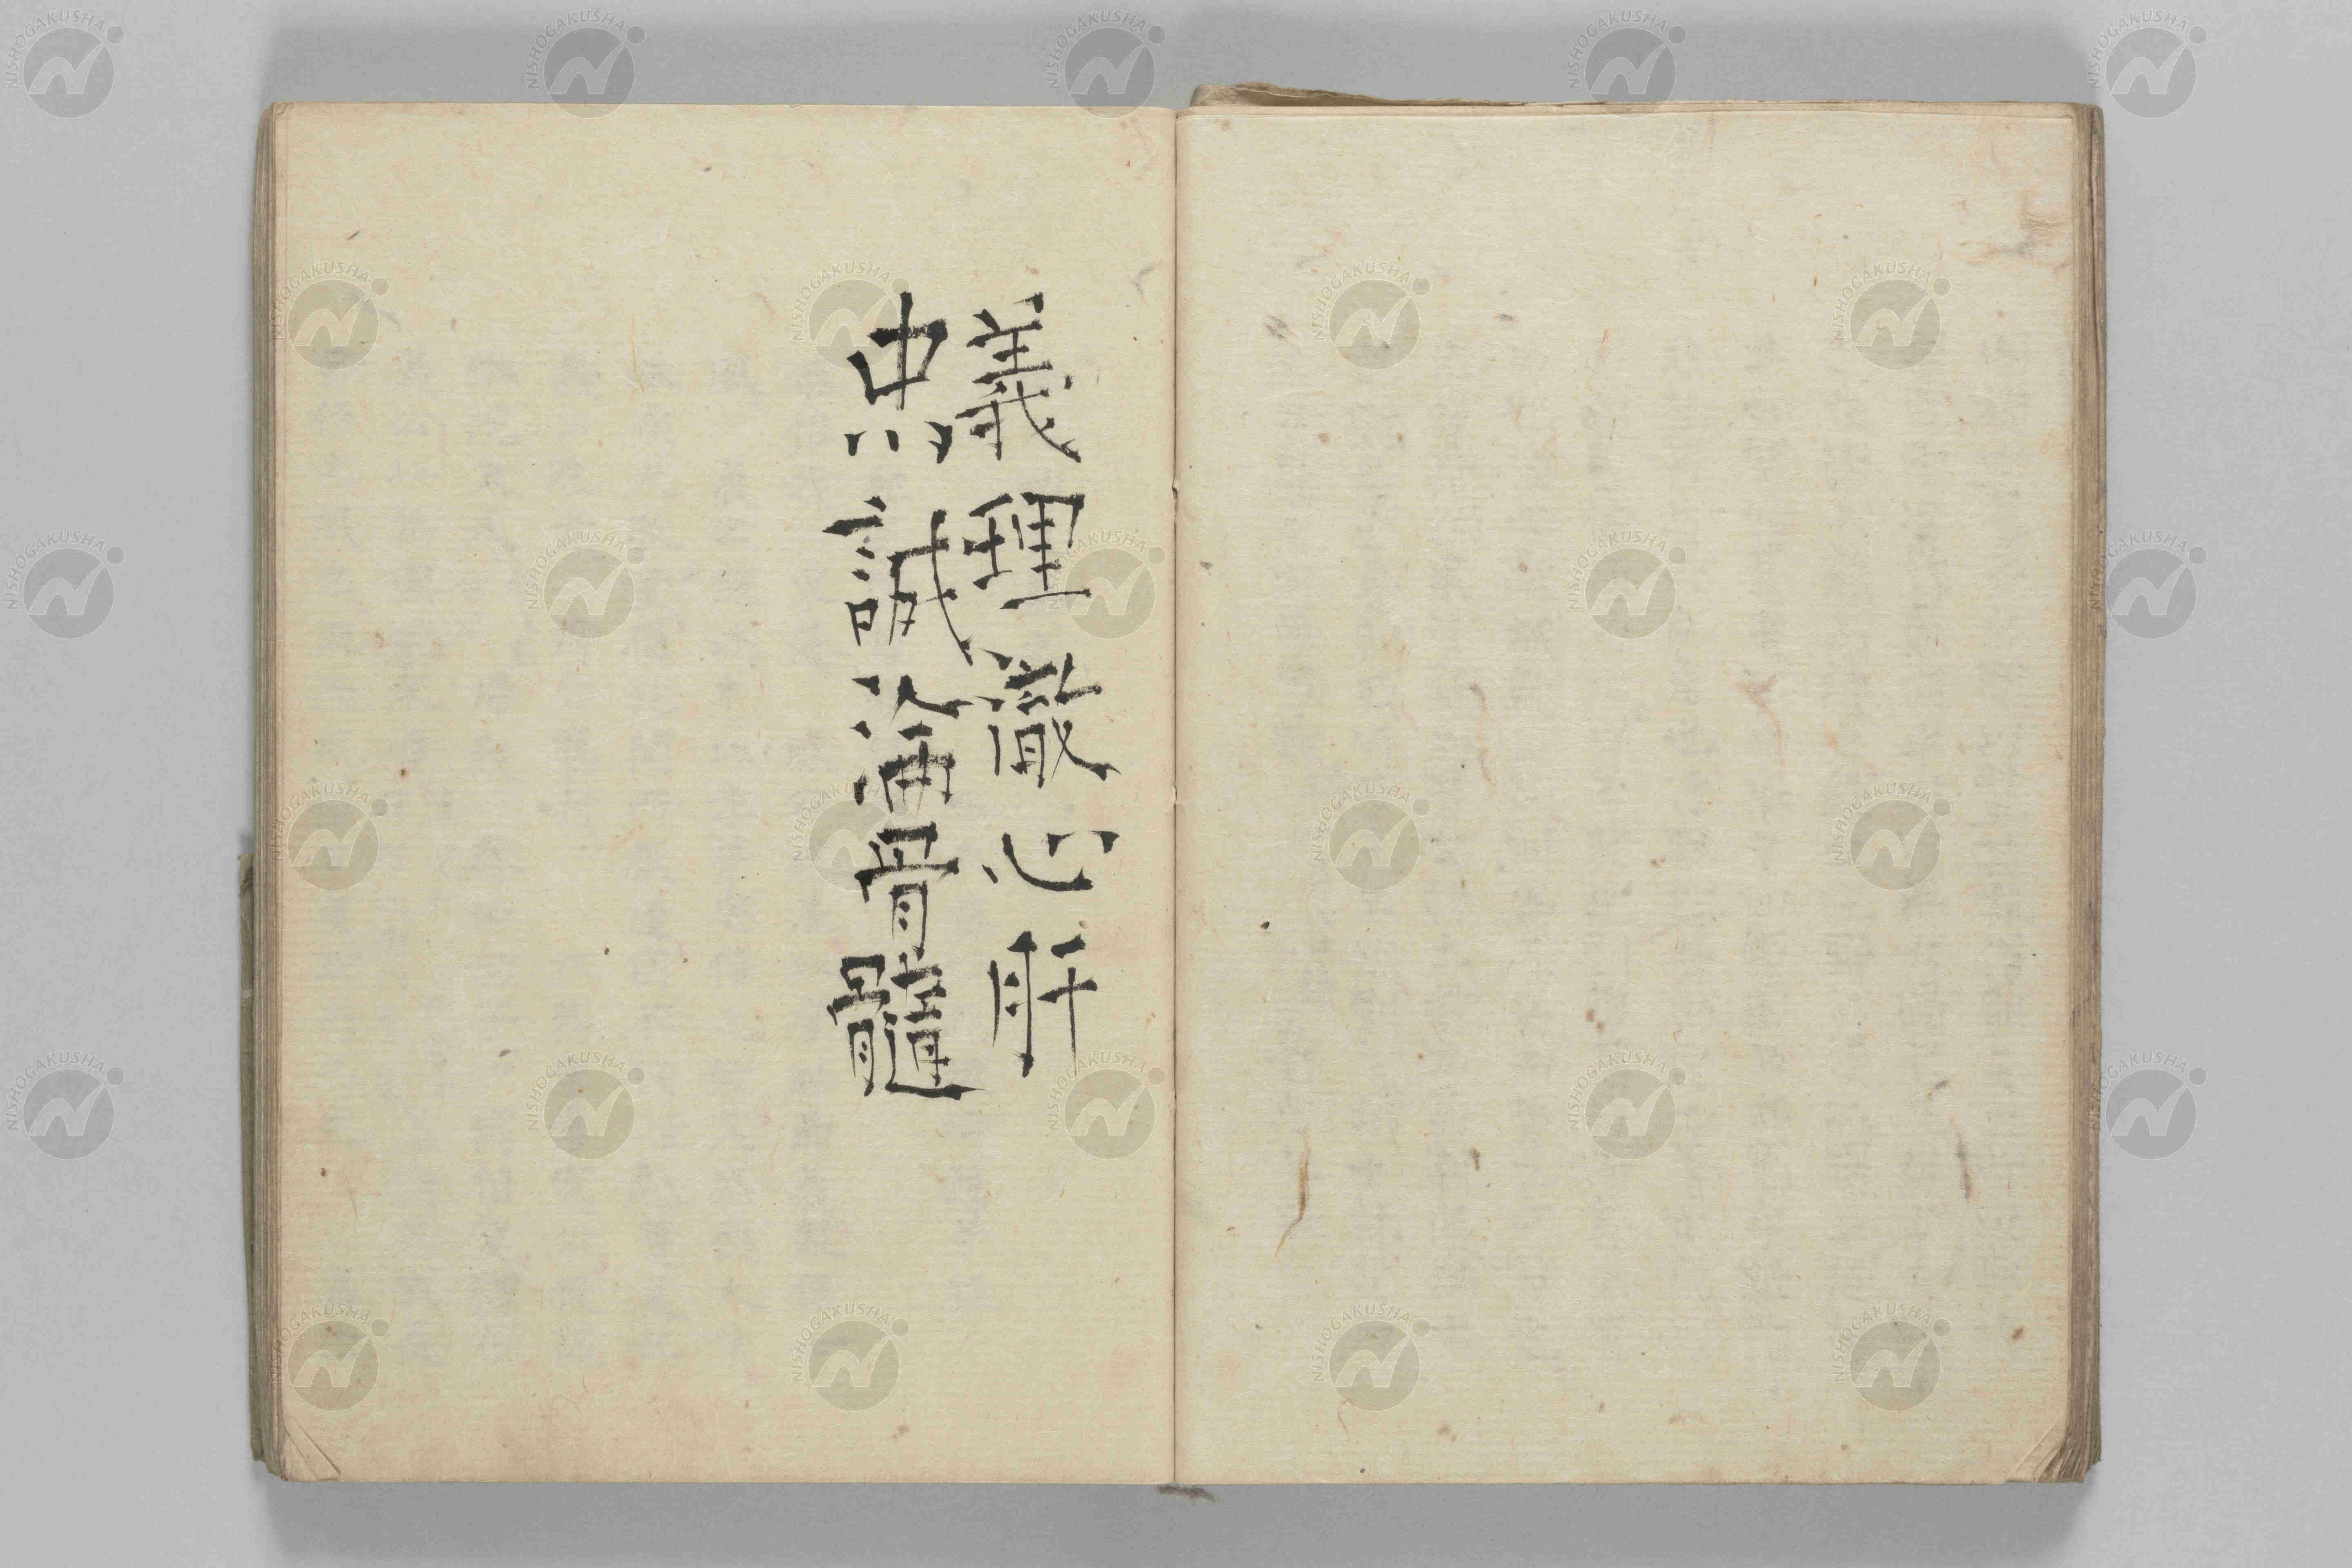 義理澈心肝
忠誠淪骨髓
NISHOGAKUSHA